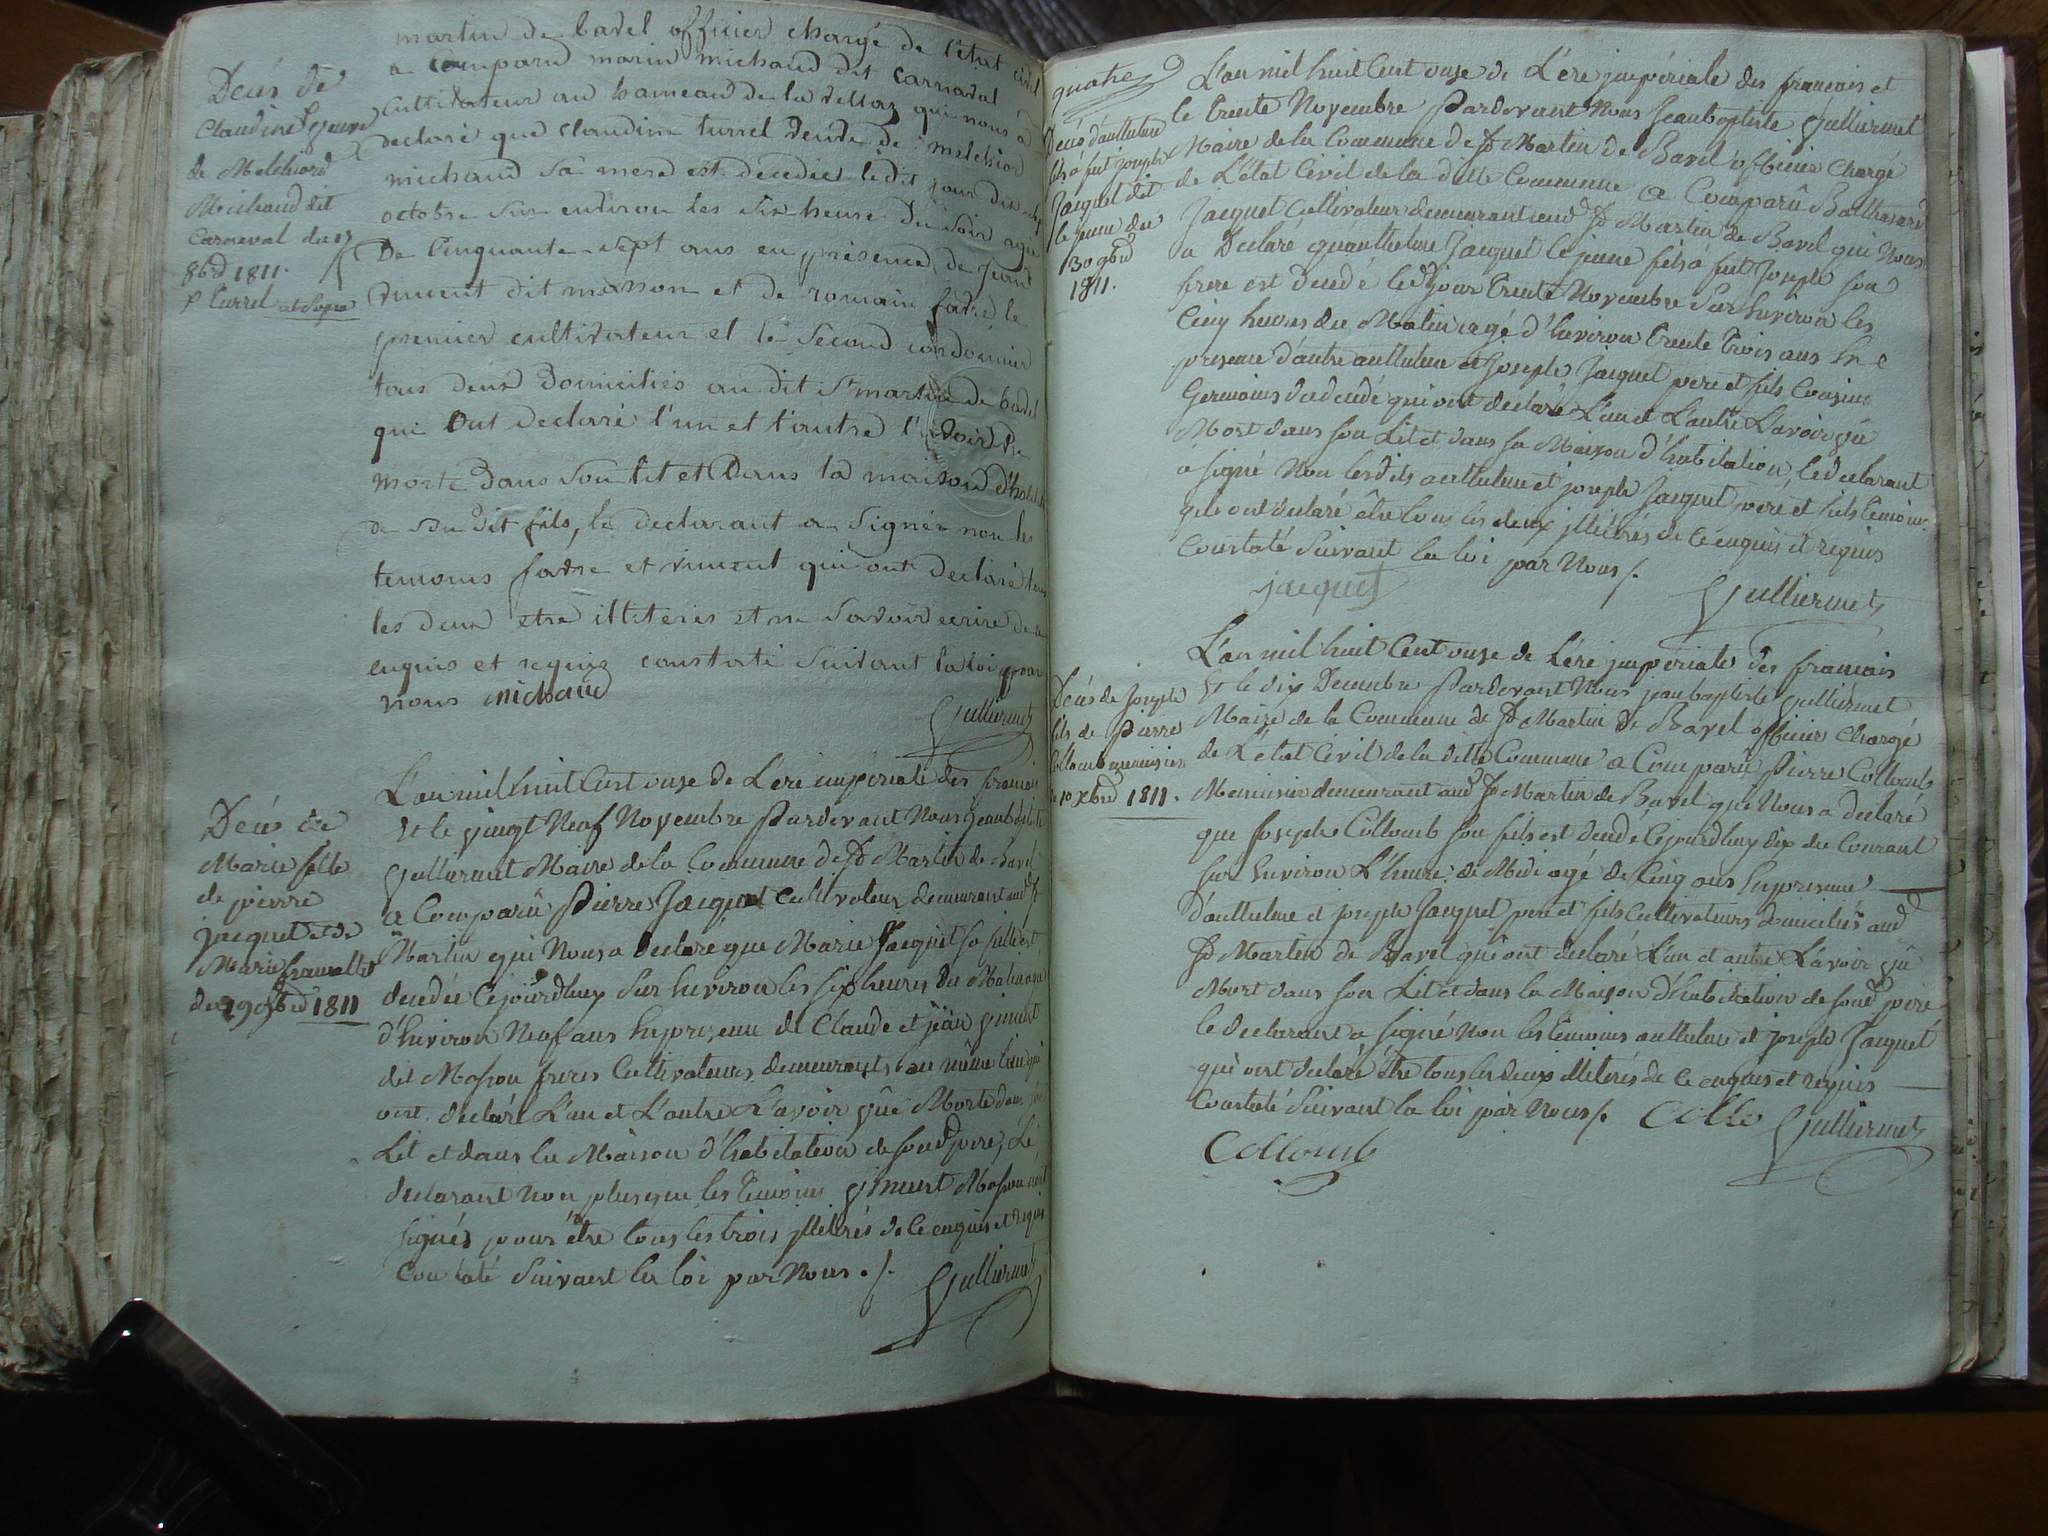 martin de bavel officier chargé de l'état civil
a comparu marin michaud dit carnaval
cultivateur au hameau de la vellaz qui nous a
declaré que claudine turrel veuve de melchior
michaud sa mere est décédée ledit jour dix sept
octobre sur environ les six heure du soir agée
De Cinquante sept ans en présence de jean
vincent dit masson et de romain favre le
premier cultivateur et le second cordonnier
tous deux Domiciliés au dit St martin de bavel
qui Ont declaré l'un et l'autre l'avoir vu
morte Dans son lit et Dans la maison d'habit
de son dit fils, le declarant a signé non les
temoins favre et vincent qui ont declaré tous
les deux etre illiterés et ne savoir ecrire de ce
enquis et requis constaté suivant la loi par
nous michaud
Gulliermet
Decés de
Claudine veuve
de Melchiord
Michaud dit
Carnaval du 17
8bre 1811.
Turrel
L'an mil huit Cent onze de L'ère impériale des francais
Et le vingt Neuf Novembre Pardevant Nous Jean baptiste
Gulliermet Maire de la Commune de St Martin de Bavel
a Comparû Pierre Jacquet Cultivateur demeurant aud St
Martin qui Nous a declaré que Marie Jacquet sa fille est
decedée Cejourdhuy Sur Environ les six heures du Matin agé
d'Environ Neuf ans En presence de Claude et jean vincent
dit Masson freres Cultivateurs demeurants au même lieu qui
ont declaré L'un et L'autre L'avoir vûe Morte dans son
Lit et dans la Maison d'habitation de soud pere, Le
declarant Non plus que les temoins vincent Masson n'ont
signés pour être tous les trois illitérés de Ce enquis et requis
Constaté Suivant la loi par Nous ./.
Gulliermet
Decés de
Marie fille
de pierre
jacquet et de
Marie
du 29 9bre 1811
quatre
L'an mil huit Cent onze de L'ère impériale des francais et
le trente Novembre Pardevant Nous Jean baptiste Gulliermet
Maire de la Commune de St Martin de Bavel officier Chargé
de L'état Civil de la ditte Commune a Comparû Balthazard
Jacquet Cultivateur demeurant aud St Martin de Bavel qui Nous
a Declaré qu'anthelme Jacquet le jeune fils à feu Joseph son
frere est decedé led jour trente Novembre Sur Environ les
Cinq heures du Matin agé d'Environ trente trois ans En
presence d'autre anthelme et Joseph Jacquet pere et fils Cousins
Germains du decedé qui ont declaré L'un et L'autre L'avoir vû
Mort dans son Lit et dans sa Maison d'habitation, le declarant
a signé Non lesdits anthelme et joseph Jacquet pere et fils temoins
qui ont declaré être tous les deux illitérés de Ce enquis et requis
Constaté Suivant la loi par Nous ./.
jacquet
Gulliermet
Decés d'anthelme
fils à feu joseph
Jacquet dit
le jeune du
30 9bre
1811.
L'an mil huit Cent onze de L'ère impériale des francais
Et le dix Decembre Pardevant Nous jean baptiste Gulliermet
Maire de la Commune de St Martin de Bavel officier Chargé
de L'état Civil de la ditte Commune a Comparû Pierre Collomb
Menuisier demeurant aud St Martin de Bavel que Nous a declaré
que Joseph Collomb son fils est decedé Cejourdhuy dix du Courant
sur Environ L'heure de Midi agé de Cinq ans En presence
d'anthelme et joseph Jacquet pere et fils Cultivateurs domiciliés aud
St Martin de Bavel qui ont declaré L'un et autre L'avoir vû
Mort dans son Lit et dans la Maison d'habitation de soud pere
le declarant a signé Non les temoins anthelme et joseph Jacquet
qui ont declaré être tous les deux illiterés de Ce enquis et requis
Constaté Suivant la loi par Nous ./. Collo Gulliermet
Collomb
Decés de Joseph
fils de Pierre
Collomb menuisier
du 10 Xbre 1811.